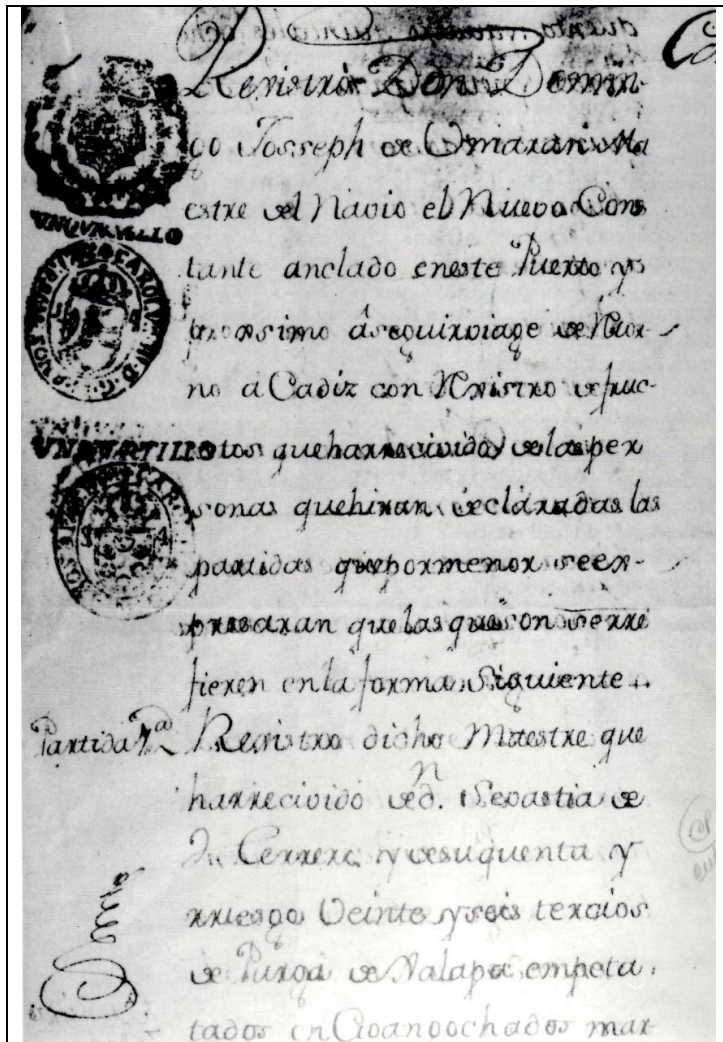 Rexistro Don Domin-
go Josseph de Omaxari Ma
estre del Navio el Nuevo Cons
tante anclado eneste Puerto y
proxsimo à seguir viage de Ntor-
no a Cadiz con Rexistro de fruc-
UNQUARTILLO
tos que harrecivido de las per
UNQUARTILLO
sonas que hiran declaradas las
partidas que pormenor seex-
presaran que las que son serre
fieren en la forma siguiente..
Partida 1ª Rexistro dicho Maestre que
harrecivido de dn. Sevastia de
Cerrera y desuquenta y
rriesgo Veinte y seis tercios
de Purga de Xalapa empeta
tados en Goangochados mar